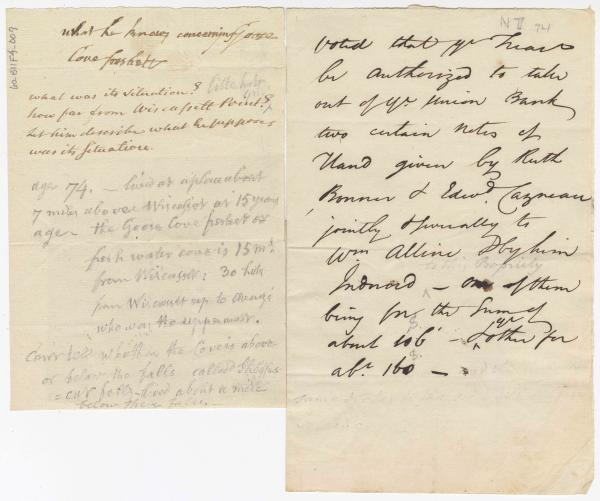 6241F4-009
what he knows concerning Goose
Cove freshett
what was its situation?
how far from Wiscassett Point?
let him describe what he supposes
was its situation.
age 74. – lived at a place about
7 miles above Wiscasset at 15 years
age – the Goose Cove freshet or
fresh water cove is 15 ms.
from Wiscasset: 30
from Wiscasset up to
who was the uppermost.
whether the Cove is above
or below the falls called
lived about a mile
below these Falls. –
N 74
Voted that ye Treasr
be authorized to take
out of ye Union Bank
two certain Notes of
Hand given by Ruth
Bonner & Edwd. Cazneau
jointly & severally to
Wm Alline & by him
Indorsed – to this Propriety one of them
being for the Sum of
about 106 $ – & ye other for
abt. 160 $ –